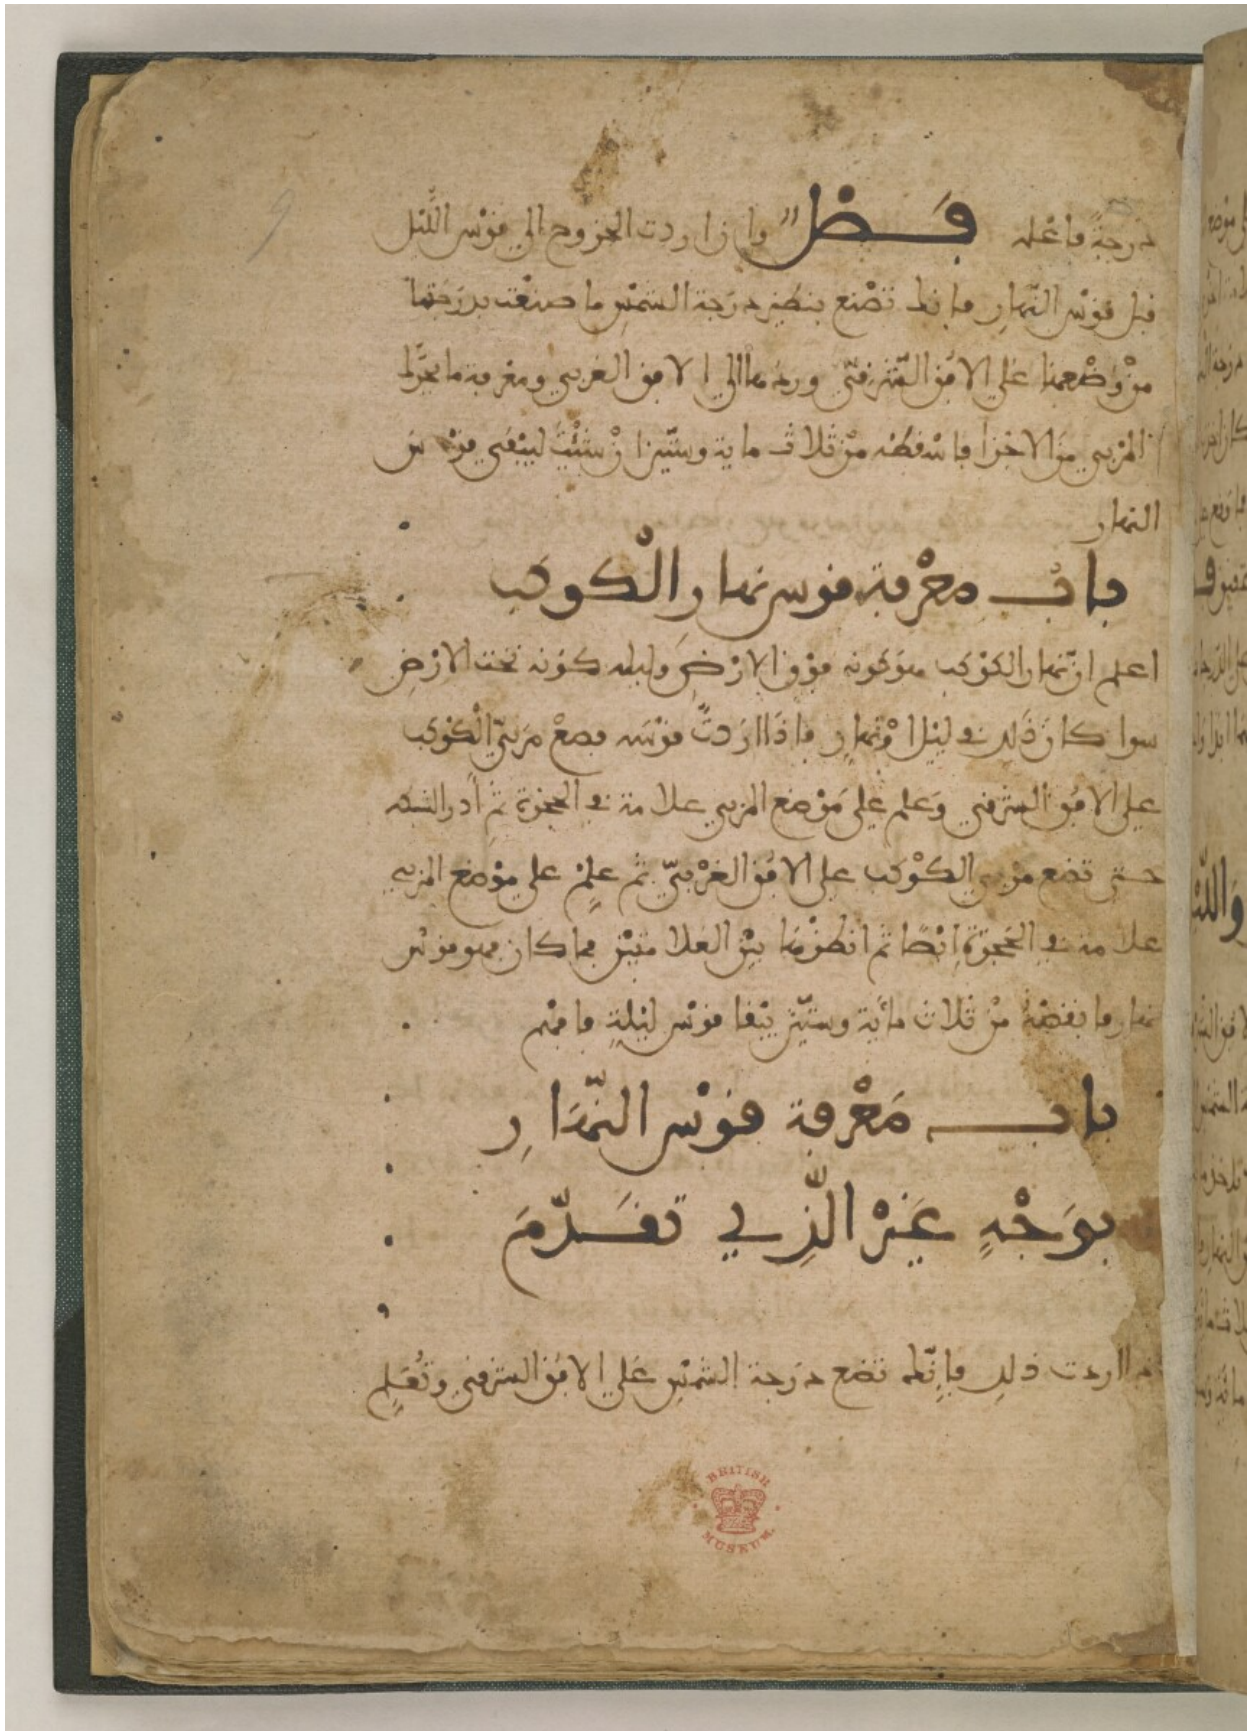 درجة فاعلمه فَصْل وان اردت الخروج الى قوْس اللَّيْل
قبل قوْس النّهارِ فإنك تصْنع بنظير درَجة الشمْسِ ما صنعْت بدرَجتها
منْ وضْعها عَلى الافُق الشّرْقيّ وردها الى الافق الغربي ومعرفة ما تحرَّك
المري منَ الاجْزا فاسْقطه منْ ثلاث ماية وستّين انْ شئْتَ ليبْقى قوْس
النهار
باب معْرفة قوس نهار الْكوكب
اعلم انّ نهار الكوْكب هوَ كونه فوْق الارْضِ وليله كوْنه تحت الارْضِ
سوا كانَ ذَلك في ليْل اوْ نهارٍ فاذَا ارَدتَّ قوْسَه فضعْ مريّ الْكوْكب
على الافُق الشرْقي وَعلم على مَوْضع المري علامة في الحجْرة ثمَ أدر الشبكة
حتى تضع مري الكوْكب على الافُق الغرْبيّ ثم علِمْ على موْضع المري
علامة في الحَجْرَة اَيْضًا ثم انظرْ مَا بيْن العَلامتيْن فما كان فهو قوْس
نهار وما نقصْته منْ ثلاث مائَة وستّين يبْقا قوْس ليْلهِ فافهْم
باب مَعْرفة قوْس النّهَارِ
بوَجْهٍ غيْر الّذِي تقَدّمَ
اذا اردت ذلك فإنّك تضع درَجة الشمْسِ عَلى الافُق الشرْقيِ وتُعَلِم
BRITISH
MUSEUM